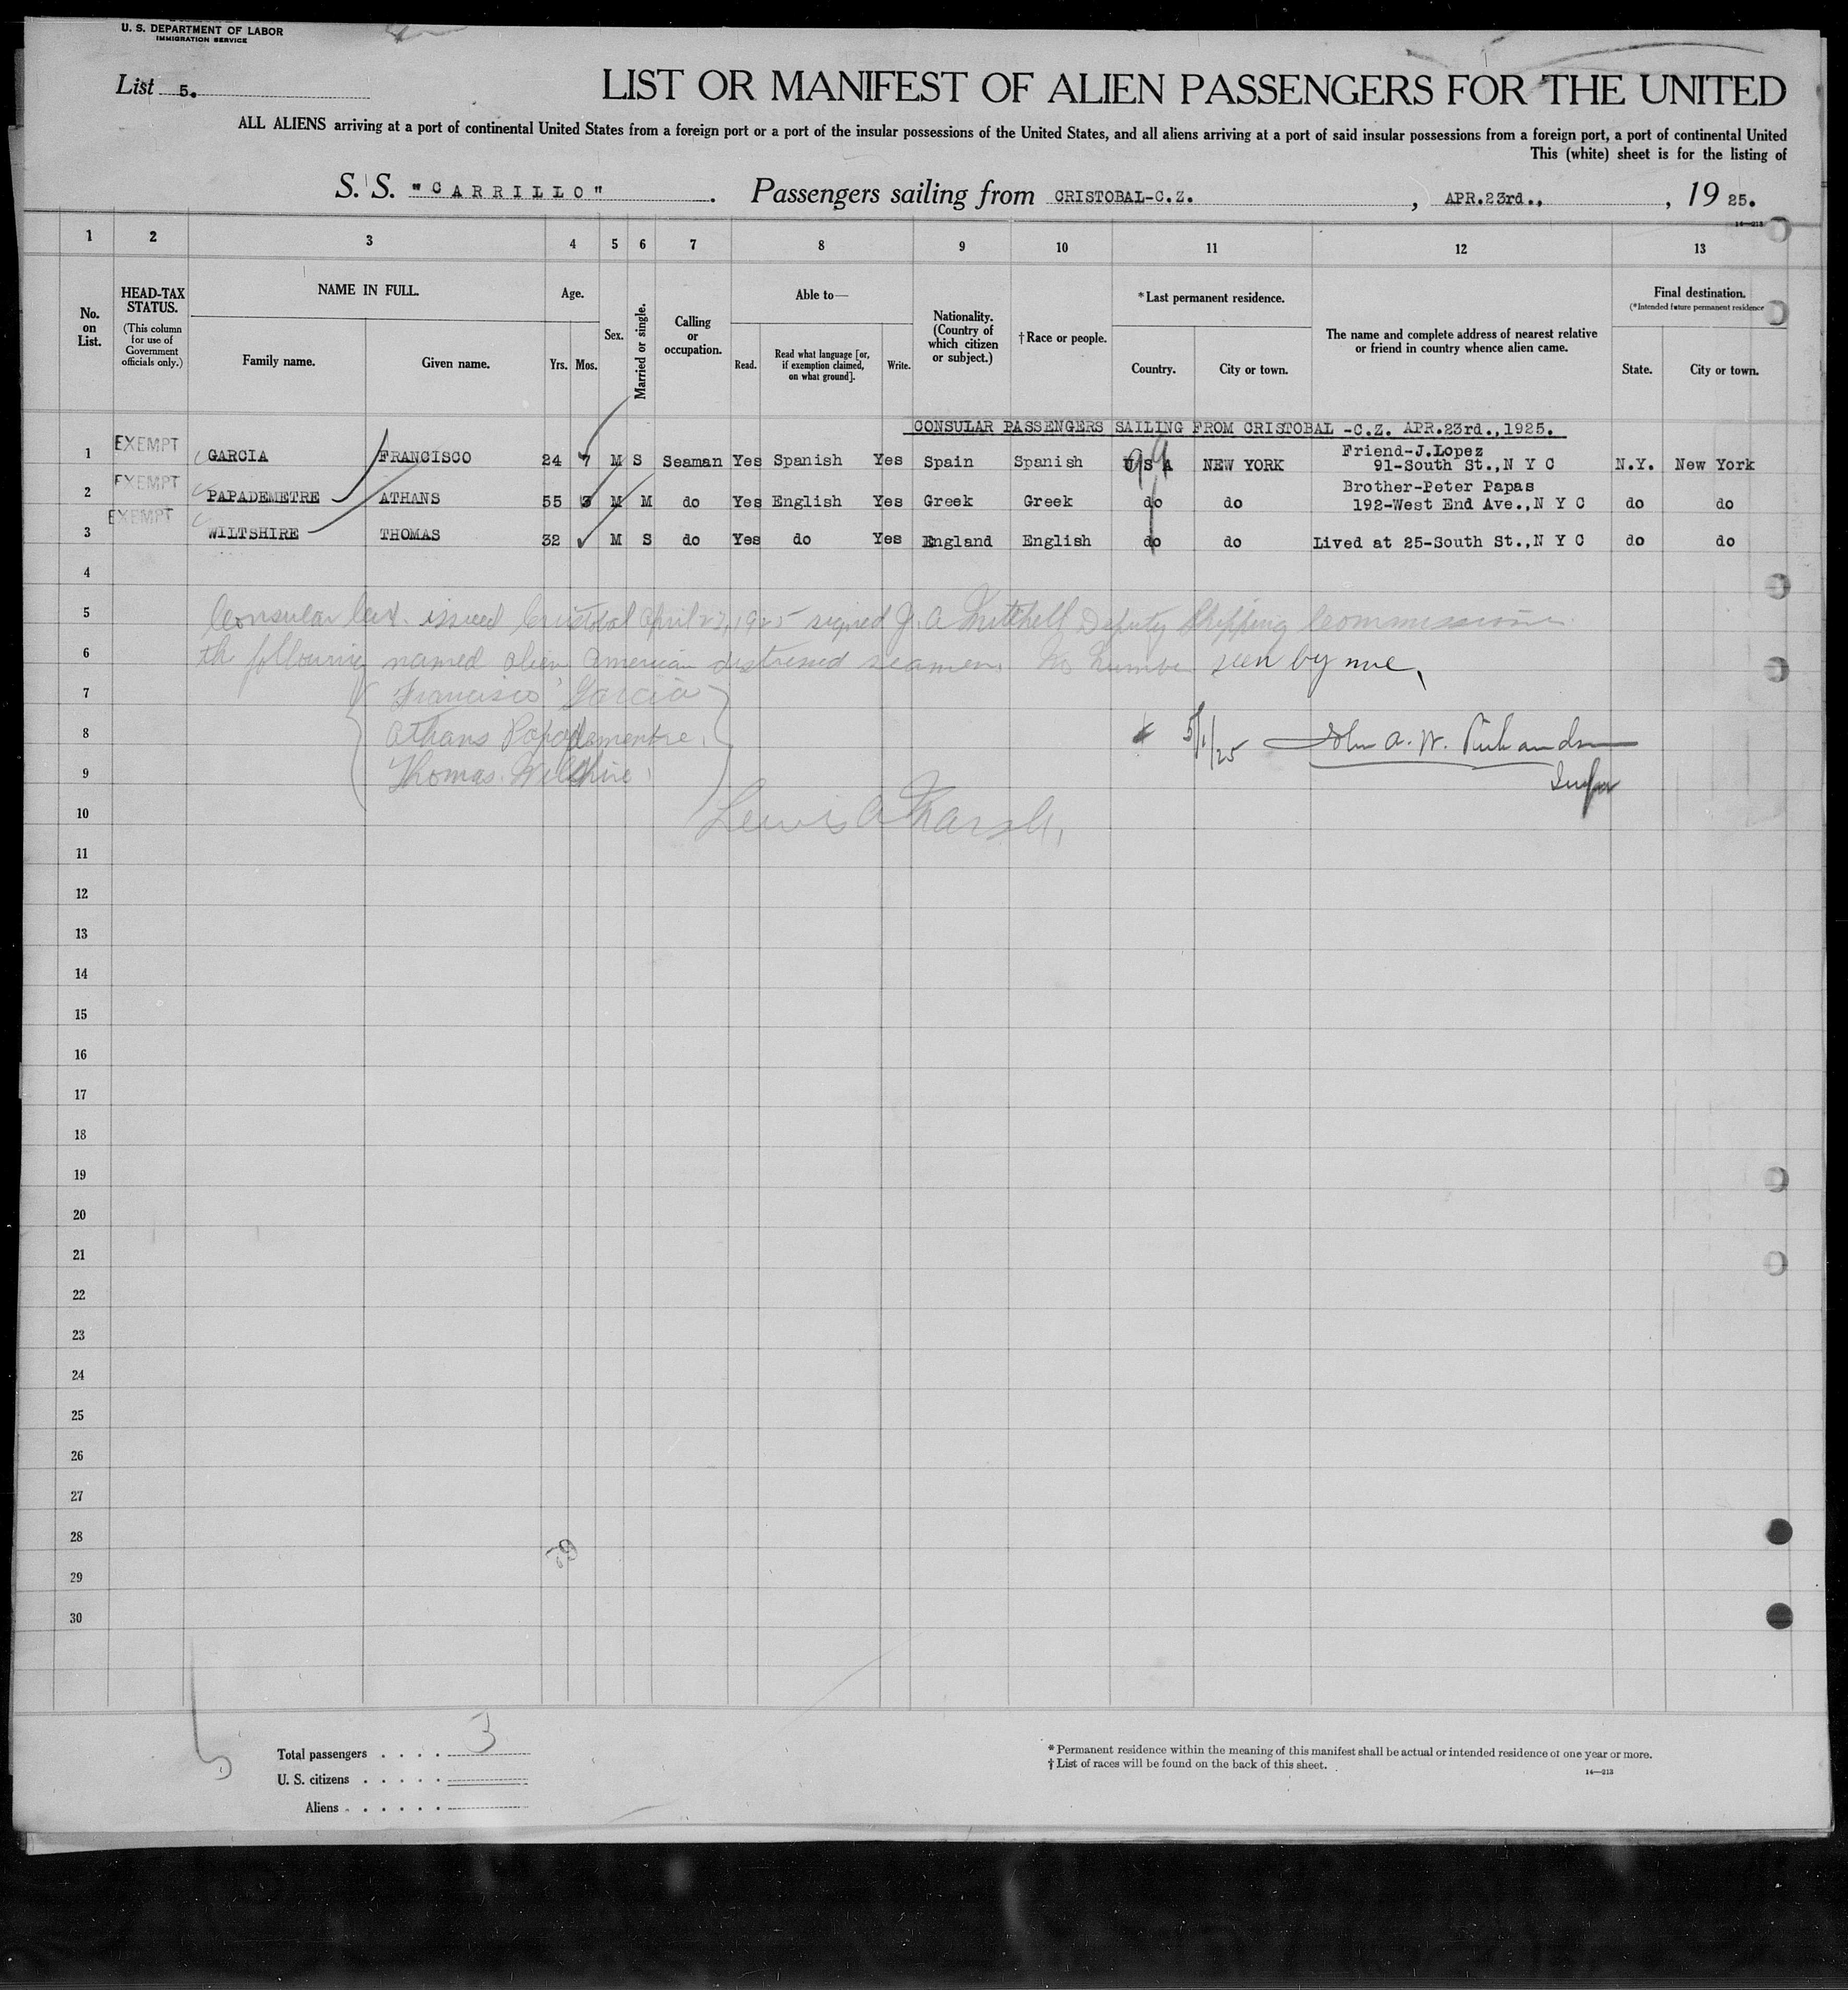 U. S. DEPARTMENT OF LABOR
IMMIGRATION SERVICE
List 5.
LIST OR MANIFEST OF ALIEN PASSENGERS FOR THE UNITED
ALL ALIENS arriving at a port of continental United States from a foreign port or a port of the insular possessions of the United States, and all aliens arriving at a port of said insular possessions from a foreign port, a port of continental United
This (white) sheet is for the listing of
S. S. "CARRILLO". Passengers sailing from CRISTOBAL-C.Z., APR.23rd., , 19 25.
14—213
1 2 3 4 5 6 7 8 9 10 11 12 13
No. on List.
HEAD-TAX STATUS.
(This column for use of Government officials only.)
NAME IN FULL.
Family name. Given name.
Age.
Yrs. Mos.
Sex.
Married or single.
Calling or occupation.
Able to—
Read. Read what language [or, if exemption claimed, on what ground]. Write.
Nationality. (Country of which citizen or subject.)
†Race or people.
*Last permanent residence.
Country. City or town.
The name and complete address of nearest relative or friend in country whence alien came.
Final destination.
(*Intended future permanent residence
State. City or town.
CONSULAR PASSENGERS SAILING FROM CRISTOBAL -C.Z. APR.23rd.,1925.
1 EXEMPT GARCIA FRANCISCO 24 7 M S Seaman Yes Spanish Yes Spain Spanish U S A NEW YORK Friend-J.Lopez 91-South St.,N Y C N.Y. New York
2 EXEMPT PAPADEMETRE ATHANS 55 3 M M do Yes English Yes Greek Greek do do Brother-Peter Papas 192-West End Ave.,N Y C do do
3 EXEMPT WILTSHIRE THOMAS 32 M S do Yes do Yes England English do do Lived at 25-South St.,N Y C do do
4
5 Consular issued Cristobal April 23, 1925 signed J. A. Mitchell Deputy Shipping Commissioner
6 the following named alien American distressed seamen. No number seen by me,
7 Francisco Garcia
8 Athans
9 Thomas Wiltshire
5/1/25 John A. W. Richardson
10 Lewis A
11
12
13
14
15
16
17
18
19
20
21
22
23
24
25
26
27
28
29
30
Total passengers . . . . 3
U. S. citizens . . . . .
Aliens . . . . . .
* Permanent residence within the meaning of this manifest shall be actual or intended residence of one year or more.
† List of races will be found on the back of this sheet.
14—213